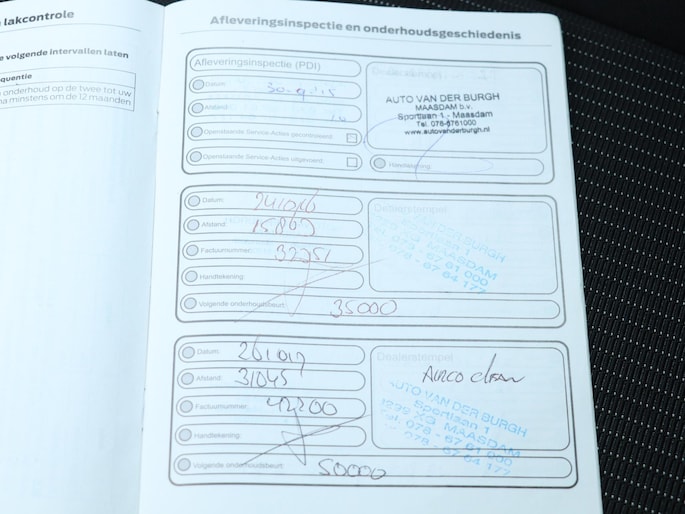 lakcontrole
e volgende intervallen laten
quentie
onderhoud op de twee tot uw
na minstens om de 12 maanden
Afleveringsinspectie en onderhoudsgeschiedenis
Afleveringsinspectie (PDI)
Datum:
Afstand:
Openstaande Service-Acties gecontroleerd:
Openstaande Service-Acties uitgevoerd:
AUTO VAN DER BURGH
MAASDAM b.v.
Sportlaan 1 - Maasdam
Tel. 078-6761000
www.autovanderburgh.nl
Handtekening:
Datum:
Afstand:
Factuurnummer:
Handtekening:
Volgende onderhoudsbeurt: 35000
Dealerstempel
MAASDAM
078 - 67 61 000
078 - 67 64 177
Datum: 261017
Afstand: 31045
Factuurnummer: 42200
Handtekening:
Volgende onderhoudsbeurt: 50000
Dealerstempel
Airco clean
AUTO VAN DER BURGH
Sportlaan 1
MAASDAM
078 - 67 61 000
078 - 67 64 177